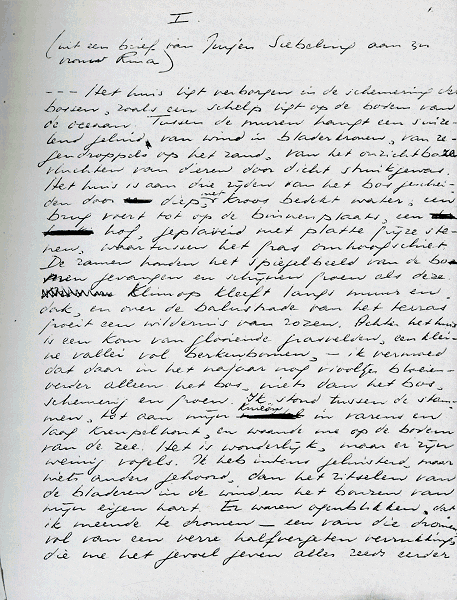 I.
(uit een brief van Jurjen Siebeling aan zijn
vrouw Rina)
--- Het huis ligt verborgen in de schemering der
bossen, zoals een schelp ligt op de bodem van
de oceaan. Tussen de muren hangt een suize-
lend geluid, van wind in bladerkronen, van re-
gendroppels op het zand, van het onzichtbare
vluchten van dieren door dicht struikgewas.
Het huis is aan drie zijden van het bos geschei-
den door diep, met kroos bedekt water, een
brug voert tot op de binnenplaats, een
hof, geplaveid met platte grijze ste-
nen, waartussen het gras omhoogschiet.
De ramen houden het spiegelbeeld van de bo-
men gevangen en schijnen groen als deze.
Klimop kleeft langs muur en
dak, en over de balustrade van het terras
groeit een wildernis van rozen. Achter het huis
is een kom van glooiende grasvelden, een klei-
ne vallei vol berkenbomen, - ik vermoed
dat daar in het najaar nog viooltjes bloeien -
verder alleen het bos, niets dan het bos,
schemering en groen. Ik stond tussen de stam-
men, tot aan mijn knieën in varens en
laag kreupelhout, en waande me op de bodem
van de zee. Het is wonderlijk, maar er zijn
weinig vogels. Ik heb intens geluisterd, maar
niets anders gehoord, dan het ritselen van
de bladeren in de wind en het bonzen van
mijn eigen hart. Er waren ogenblikken, dat
ik meende te dromen - een van die dromen
vol van een verre halfvergeten verrukking,
die me het gevoel geven alles reeds eerder